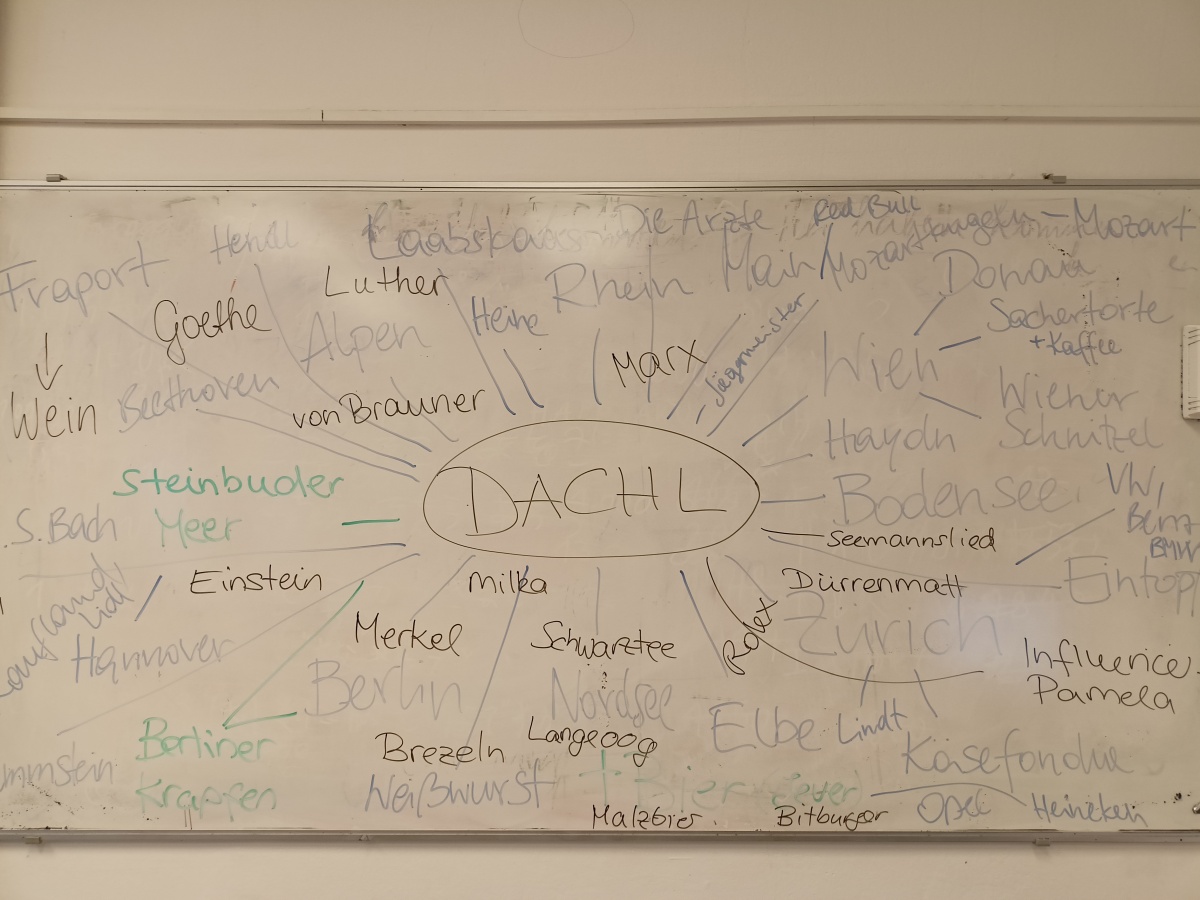 Die Ärzte
Red Bull
Mozart
Hendl
Laabskaus
Fraport
Luther
Rhein
Main
Mozart
Donau
Goethe
Alpen
Heine
Marx
Jägermeister
Sachertorte
+ Kaffee
Wien
Wein
Beethoven
von Brauner
Wiener
Schnitzel
Haydn
DACHL
Steinbuder
Meer
S. Bach
Bodensee
VW,
Benz
BMW
Seemannslied
Einstein
Milka
Dürrenmatt
Eintopf
Lidl
Hannover
Merkel
Schwarztee
Rolex
Zürich
Influence
Pamela
Berlin
Nordsee
Langeoog
Elbe
Lindt
Berliner
Krapfen
Brezeln
Weißwurst
+ Bier
Käsefondue
mmstein
Malzbier
Bitburger
Opel
Heineken